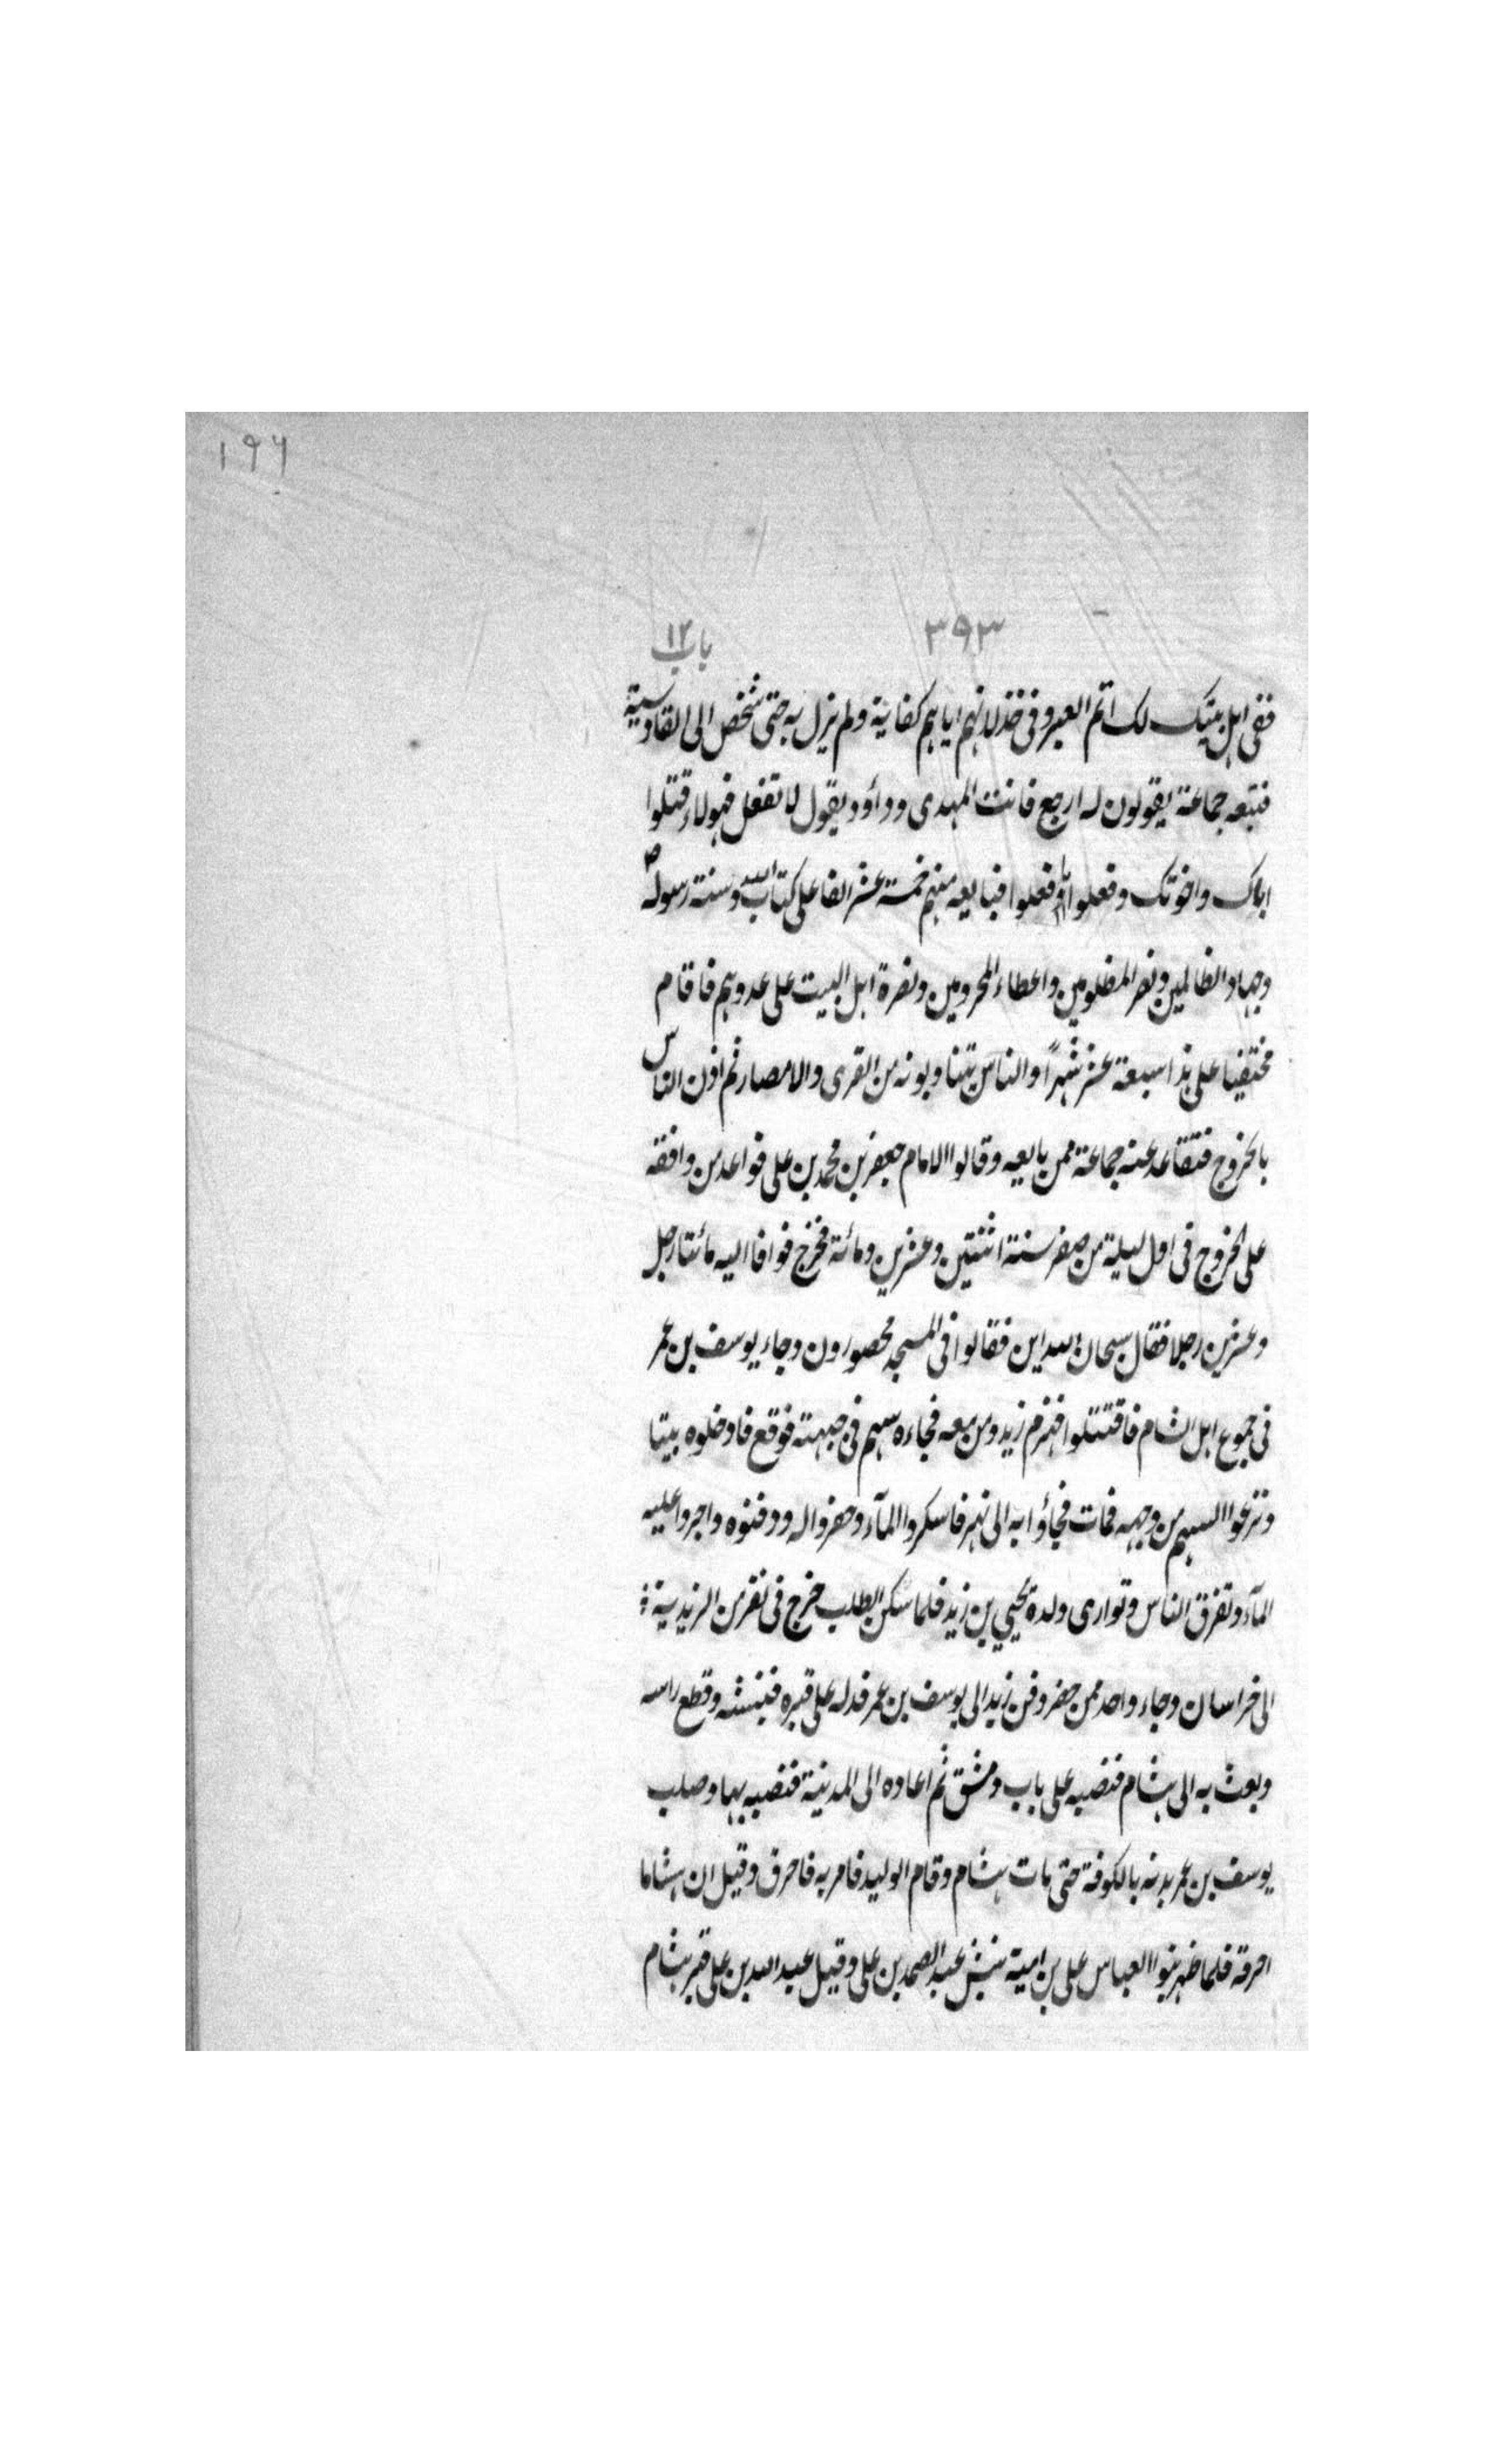 ١٩٦
٣٩٣ باب ١٢
ففى اهل بيتك لك اتم العبر وفى خذلانهم اياهم كفاية ولم يزل به حتى شخص الى القادسية
فتبعه جماعة يقولون له ارجع فانت المهدى وداؤد يقول لا تفعل فهولاء قتلوا
اباك واخوتك وفعلوا وفعلوا فبايعه منهم خمسة عشر الفا على كتاب الله وسنة رسوله ص
وجهاد الظالمين ونصر المظلومين واعطاء المحرومين ونصرة اهل البيت على عدوهم فاقام
مختفيا على هذا سبعة عشر شهرًا والناس يتناوبونه من القرى والامصار ثم اذن الناس
بالخروج فتقاعد عنه جماعة ممن بايعه وقالوا الامام جعفر بن محمد بن على فواعد من وافقه
على الخروج فى اول ليلة من صفر سنة اثنتين وعشرين ومائة فخرج فوافا اليه مائتا رجل
وعشرين رجلا فقال سبحان الله اين فقالوا فى المسجد محصورون وجاء يوسف بن عمر
فى جموع اهل الشام فاقتتلوا فهزم زيد ومن معه فجاءه سهم فى جبهته فوقع فادخلوه بيتا
ونزعوا السهم من وجهه فمات فجاؤا به الى نهر فاسكروا المآء وحفروا له ودفنوه واجروا عليه
المآء وتفرق الناس وتوارى ولده يحيي بن زيد فلما سكن الطلب خرج فى نفر من الزيدية
الى خراسان وجاء واحد ممن حضر دفن زيد الى يوسف بن عمر فدله على قبره فنبشه وقطع راسه
وبعث به الى هشام فنصبه على باب دمشق ثم اعاده الى المدينة فنصبه بها وصلب
يوسف بن عمر بدنه بالكوفة حتى مات هشام وقام الوليد فامر به فاحرق وقيل ان هشاما
احرقه فلما ظهر بنوا العباس على بن امية نبش عبد الصمد بن على وقيل عبد الله بن على قبر هشام